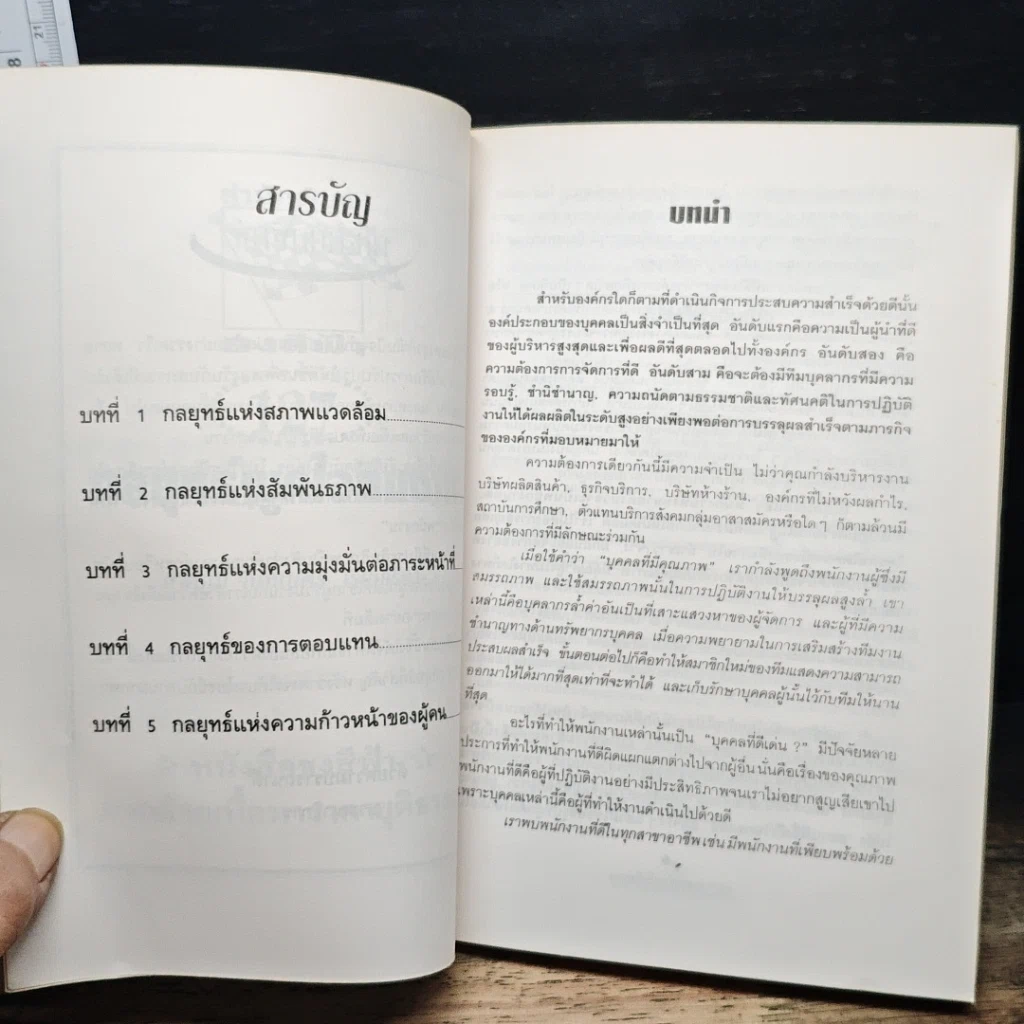 สารบัญ
บทที่ 1 กลยุทธ์แห่งสภาพแวดล้อม
บทที่ 2 กลยุทธ์แห่งสัมพันธภาพ
บทที่ 3 กลยุทธ์แห่งความมุ่งมั่นต่อภาระหน้าที่
บทที่ 4 กลยุทธ์ของการตอบแทน
บทที่ 5 กลยุทธ์แห่งความก้าวหน้าของผู้คน
บทนำ
สำหรับองค์กรใดก็ตามที่ดำเนินกิจการประสบความสำเร็จด้วยดีนั้น
องค์ประกอบของบุคคลเป็นสิ่งจำเป็นที่สุด อันดับแรกคือความเป็นผู้นำที่ดี
ของผู้บริหารสูงสุดและเพื่อผลดีที่สุดตลอดไปทั้งองค์กร อันดับสอง คือ
ความต้องการการจัดการที่ดี อันดับสาม คือจะต้องมีทีมบุคลากรที่มีความ
รอบรู้, ชำนิชำนาญ, ความถนัดตามธรรมชาติและทัศนคติในการปฏิบัติ
งานให้ได้ผลผลิตในระดับสูงอย่างเพียงพอต่อการบรรลุผลสำเร็จตามภารกิจ
ขององค์กรที่มอบหมายมาให้
ความต้องการเดียวกันนี้มีความจำเป็น ไม่ว่าคุณกำลังบริหารงาน
บริษัทผลิตสินค้า, ธุรกิจบริการ, บริษัทห้างร้าน, องค์กรที่ไม่หวังผลกำไร,
สถาบันการศึกษา, ตัวแทนบริการสังคมกลุ่มอาสาสมัครหรือใด ๆ ก็ตามล้วนมี
ความต้องการที่มีลักษณะร่วมกัน
เมื่อใช้คำว่า "บุคคลที่มีคุณภาพ" เรากำลังพูดถึงพนักงานผู้ซึ่งมี
สมรรถภาพ และใช้สมรรถภาพนั้นในการปฏิบัติงานให้บรรลุผลสูงล้ำ เขา
เหล่านี้คือบุคลากรล้ำค่าอันเป็นที่เสาะแสวงหาของผู้จัดการ และผู้ที่มีความ
ชำนาญทางด้านทรัพยากรบุคคล เมื่อความพยายามในการเสริมสร้างทีมงาน
ประสบผลสำเร็จ ขั้นตอนต่อไปก็คือทำให้สมาชิกใหม่ของทีมแสดงความสามารถ
ออกมาให้ได้มากที่สุดเท่าที่จะทำได้ และเก็บรักษาบุคคลผู้นั้นไว้กับทีมให้นาน
ที่สุด
อะไรที่ทำให้พนักงานเหล่านั้นเป็น "บุคคลที่ดีเด่น ?" มีปัจจัยหลาย
ประการที่ทำให้พนักงานที่ดีผิดแผกแตกต่างไปจากผู้อื่น นั่นคือเรื่องของคุณภาพ
พนักงานที่ดีคือผู้ที่ปฏิบัติงานอย่างมีประสิทธิภาพจนเราไม่อยากสูญเสียเขาไป
เพราะบุคคลเหล่านี้คือผู้ที่ทำให้งานดำเนินไปด้วยดี
เราพบพนักงานที่ดีในทุกสาขาอาชีพ เช่น มีพนักงานที่เพียบพร้อมด้วย